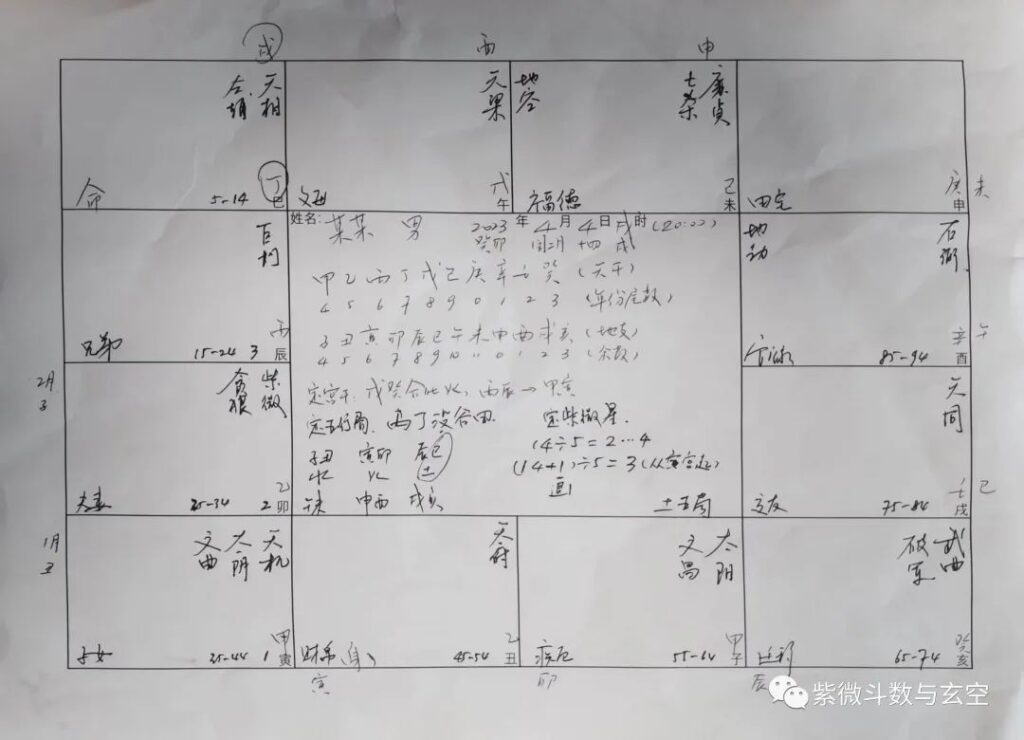 戌 酉 申
左辅 天相
命 5-14 丁巳
天梁
父母 戊午
地空 七杀 廉贞
福德 己未
田宅 庚申 未
巨门
兄弟 15-24 3 丙辰
姓名: 某某 男 2023年4月4日戌时(20:00)
癸卯 闰二月 十四 戌
甲乙丙丁戊己庚辛壬癸(天干)
4 5 6 7 8 9 0 1 2 3 (年份尾数)
(地支)
(余数)
定宫干: 戊癸合化火, 丙辰→甲寅
定五行局. 定紫微星.
14÷5=2…4
子丑 寅卯 辰巳 (14+1)÷5=3(从寅宫起)
水 火 土
午未 申酉 戌亥 土五局
地劫 右弼
官禄 85-94 辛酉 午
2月
子
贪狼 紫微
夫妻 25-34 2 乙卯
天同
交友 75-84 壬戌 巳
1月
丑
文曲 太阴 天机
子女 35-44 1 甲寅
天府
财帛(身) 45-54 乙丑
寅
文昌 太阳
疾厄 55-64 甲子
卯
破军 武曲
迁移 65-74 癸亥
辰
紫微斗数与玄空